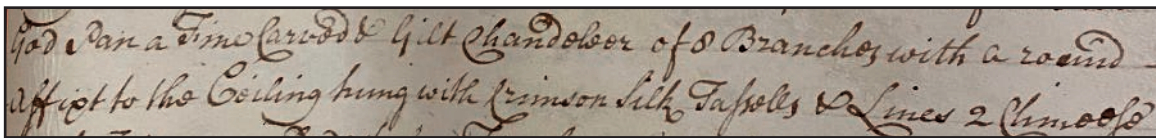 God Pan a Fine Carved & Gilt Chandeleer of 8 Branches with a round
Affixt to the Ceiling hung with Crimson Silk Tassells & Lines 2